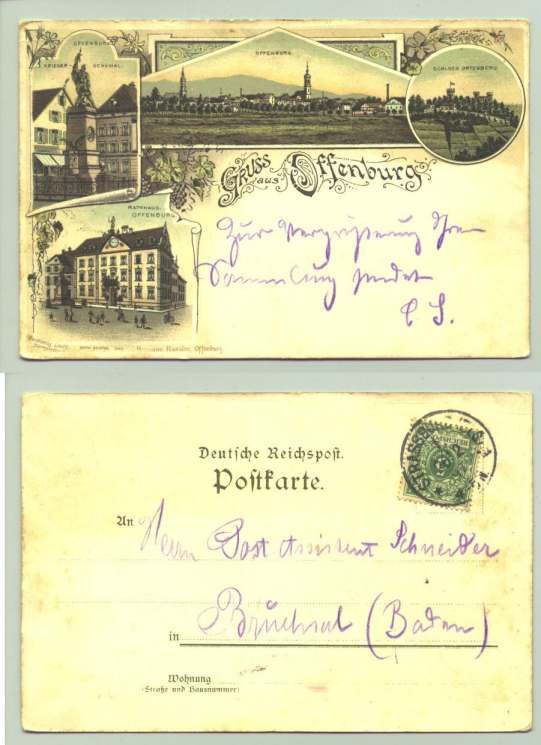 OFFENBURG
KRIEGER-DENKMAL.
OFFENBURG
SCHLOSS ORTENBERG
Gruss aus Offenburg
RATHHAUS-OFFENBURG
Zur Vergrößerung Ihrer
Sammlung sendet
C S.
Offenburg
Deutsche Reichspost.
Postkarte.
STRASSB
An Herrn Post Assistent Schneider
in Bruchsal (Baden)
Wohnung
(Straße und Hausnummer)